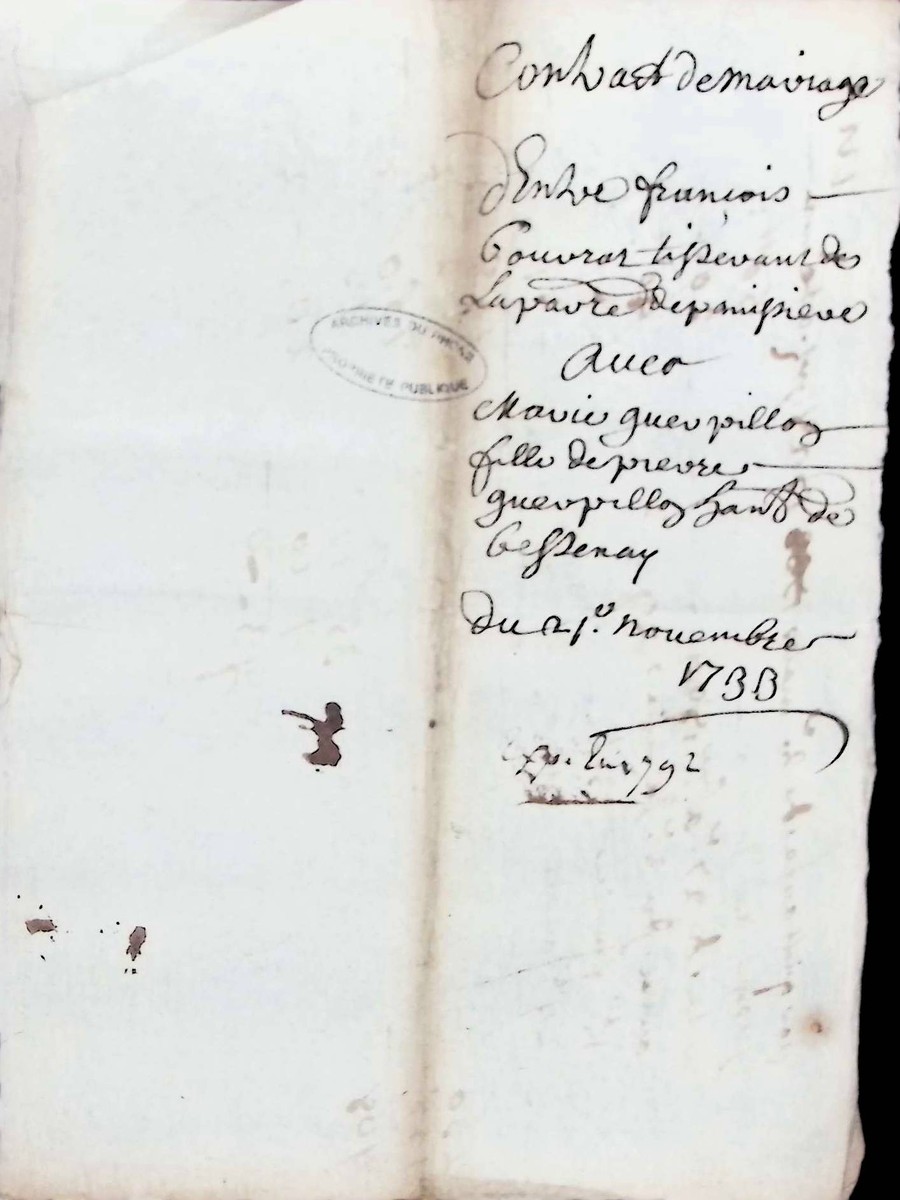 Contract de mariage
d'Entre françois
Gouvrat tisserant de
La paroe de panissiere
Avec
Marie guerpilloz
fille de pierre
guerpilloz habt de
bessenay
du 21e. novembre
1733
Exp. En 1792
ARCHIVES DU RHONE
PROPRIETE PUBLIQUE